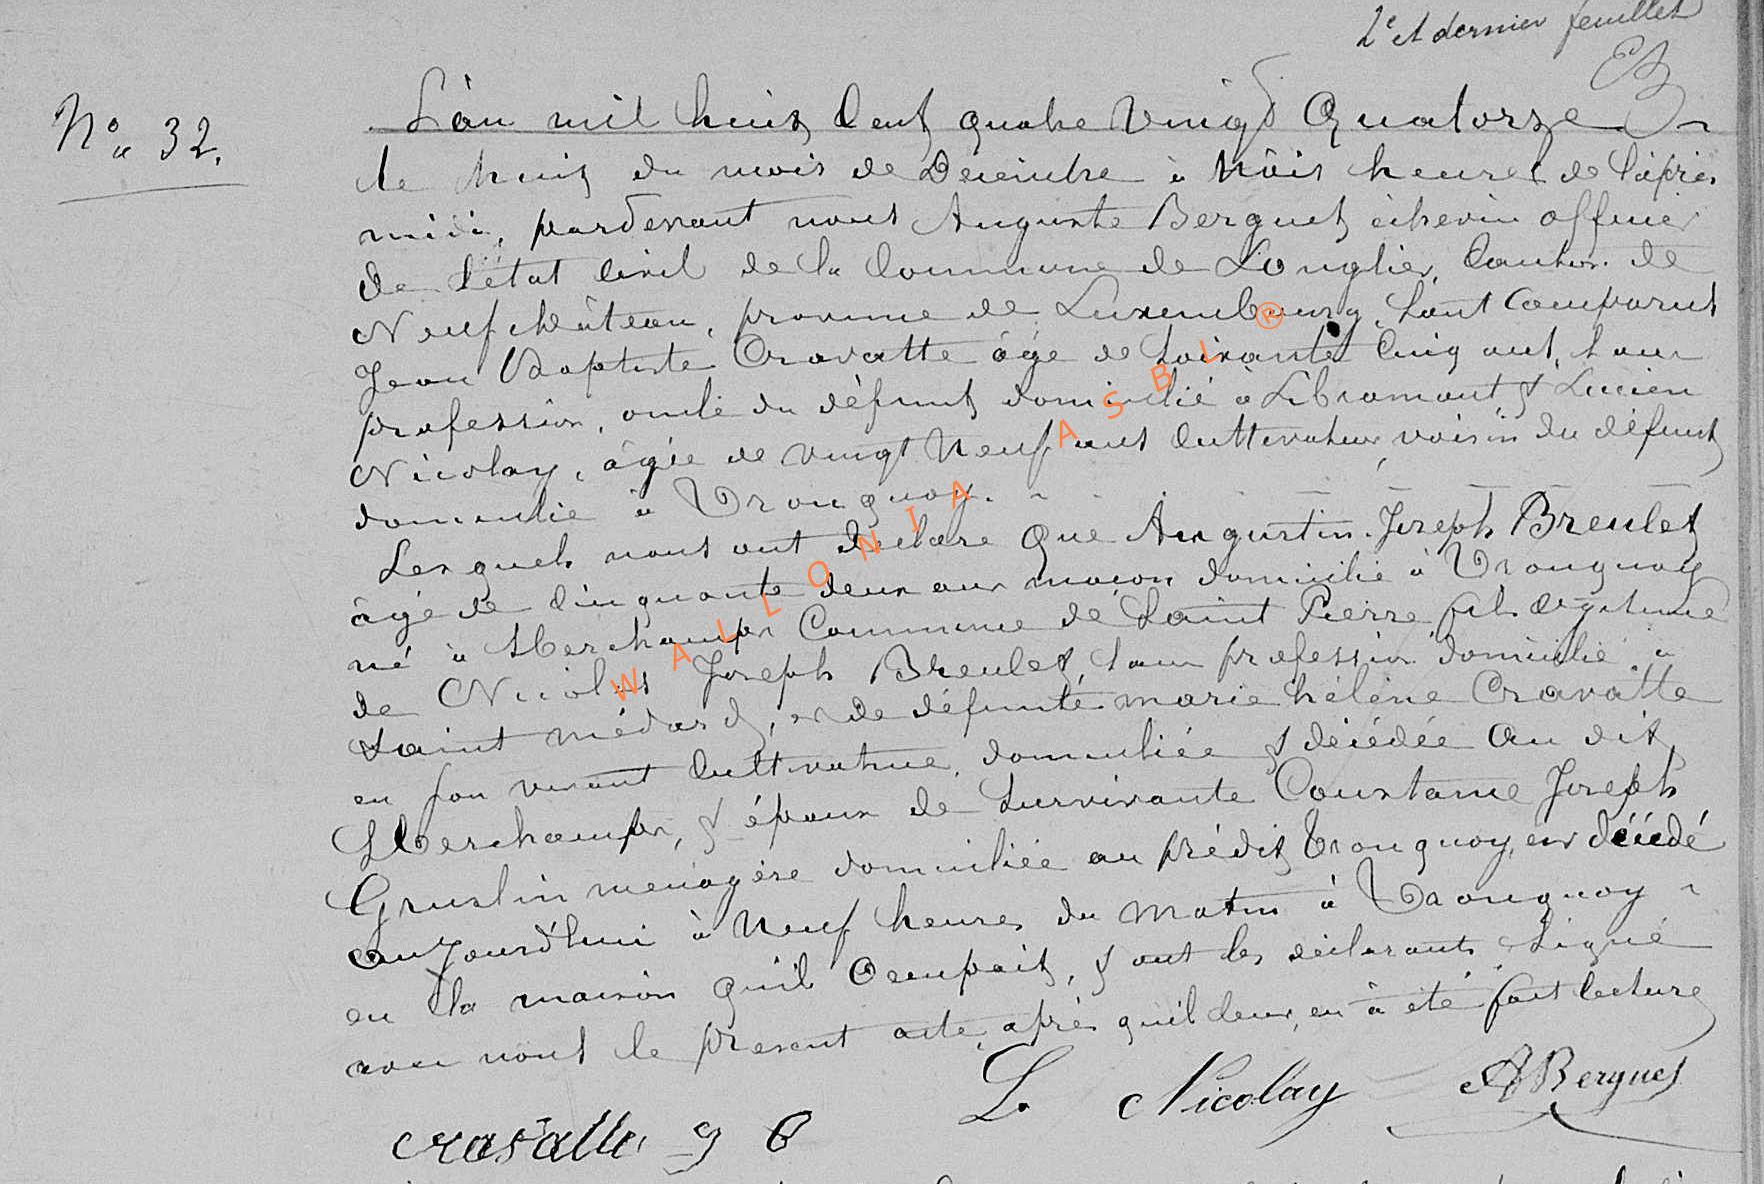 2e et dernier feuillet
EB
No 32.
L'an mil huit cent quatre vingt quatorze
le huit du mois de Décembre à trois heures de l'après
midi, pardevant nous Auguste Berguet échevin officier
de l'état civil de la Commune de Longlier, Canton de
Neufchâteau, province de Luxembourg, sont comparus
Jean Baptiste Cravatte âgé de soixante cinq ans, sans
profession, oncle du défunt domicilié à Libramont & Lucien
Nicolay, âgée de vingt neuf ans cultivateur, voisin du défunt
domicilié à Tronquoy.
Lesquels nous ont déclaré que Augustin Joseph Breulet
âgé de cinquante deux ans maçon domicilié à Tronquoy
né à Sberchamps Commune de Saint Pierre fils légitime
de Nicolas Joseph Breulet, sans profession domicilié à
Saint médard, et de défunte marie hélène Cravatte
en son vivant cultivatrice, domiciliée & décédée au dit
Sberchamps, & époux de survivante Constance Joseph
Gruslin ménagère domiciliée au prédit Tronquoy, est décédé
aujourd'hui à neuf heures du matin à Tronquoy
en la maison qu'il occupait, & ont les déclarants signé
avec nous le présent acte, après qu'il leur, en à été fait lecture
L. Nicolay
ABerguet
cravatte J B
WALLONIA ASBL ®